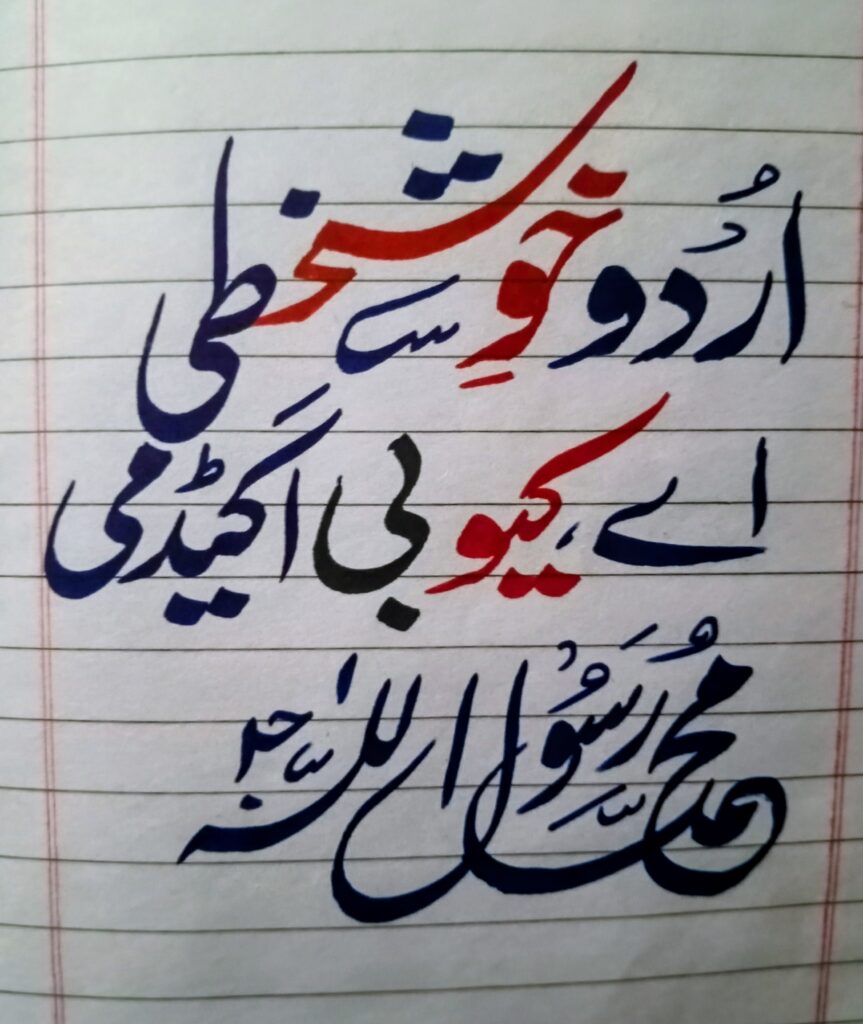 اُردو خوشخطی
اے، کیو بی اکیڈمی
مُحمد رَسُول اللہ